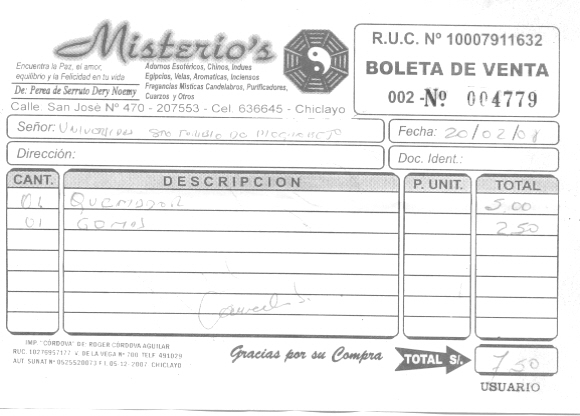 Misterio's
Encuentra la Paz, el amor,
equilibrio y la Felicidad en tu vida
De: Perea de Serrato Dery Noemy
Adornos Esotéricos, Chinos, Indues
Egipcios, Velas, Aromaticas, Inciensos
Fragancias Misticas Candelabros, Purificadores,
Cuarzos y Otros
Calle San José Nº 470 - 207553 - Cel. 636645 - Chiclayo
R.U.C. Nº 10007911632
BOLETA DE VENTA
002 - Nº 004779
Señor: UNIVERSIDAD Sto Toribio DE MOGROVEJO
Fecha: 20/02/08
Dirección:
Doc. Ident.:
CANT. DESCRIPCION P. UNIT. TOTAL
01 5.00
01 GOMAS 2.50
Cancelado
IMP. "CORDOVA" DE: ROGER CORDOVA AGUILAR
RUC. 10276957177 V. DE LA VEGA Nº 700 TELF. 491029
AUT. SUNAT Nº 0525520073 F.I. 05-12-2007 CHICLAYO
Gracias por su Compra
TOTAL S/. 7.50
USUARIO